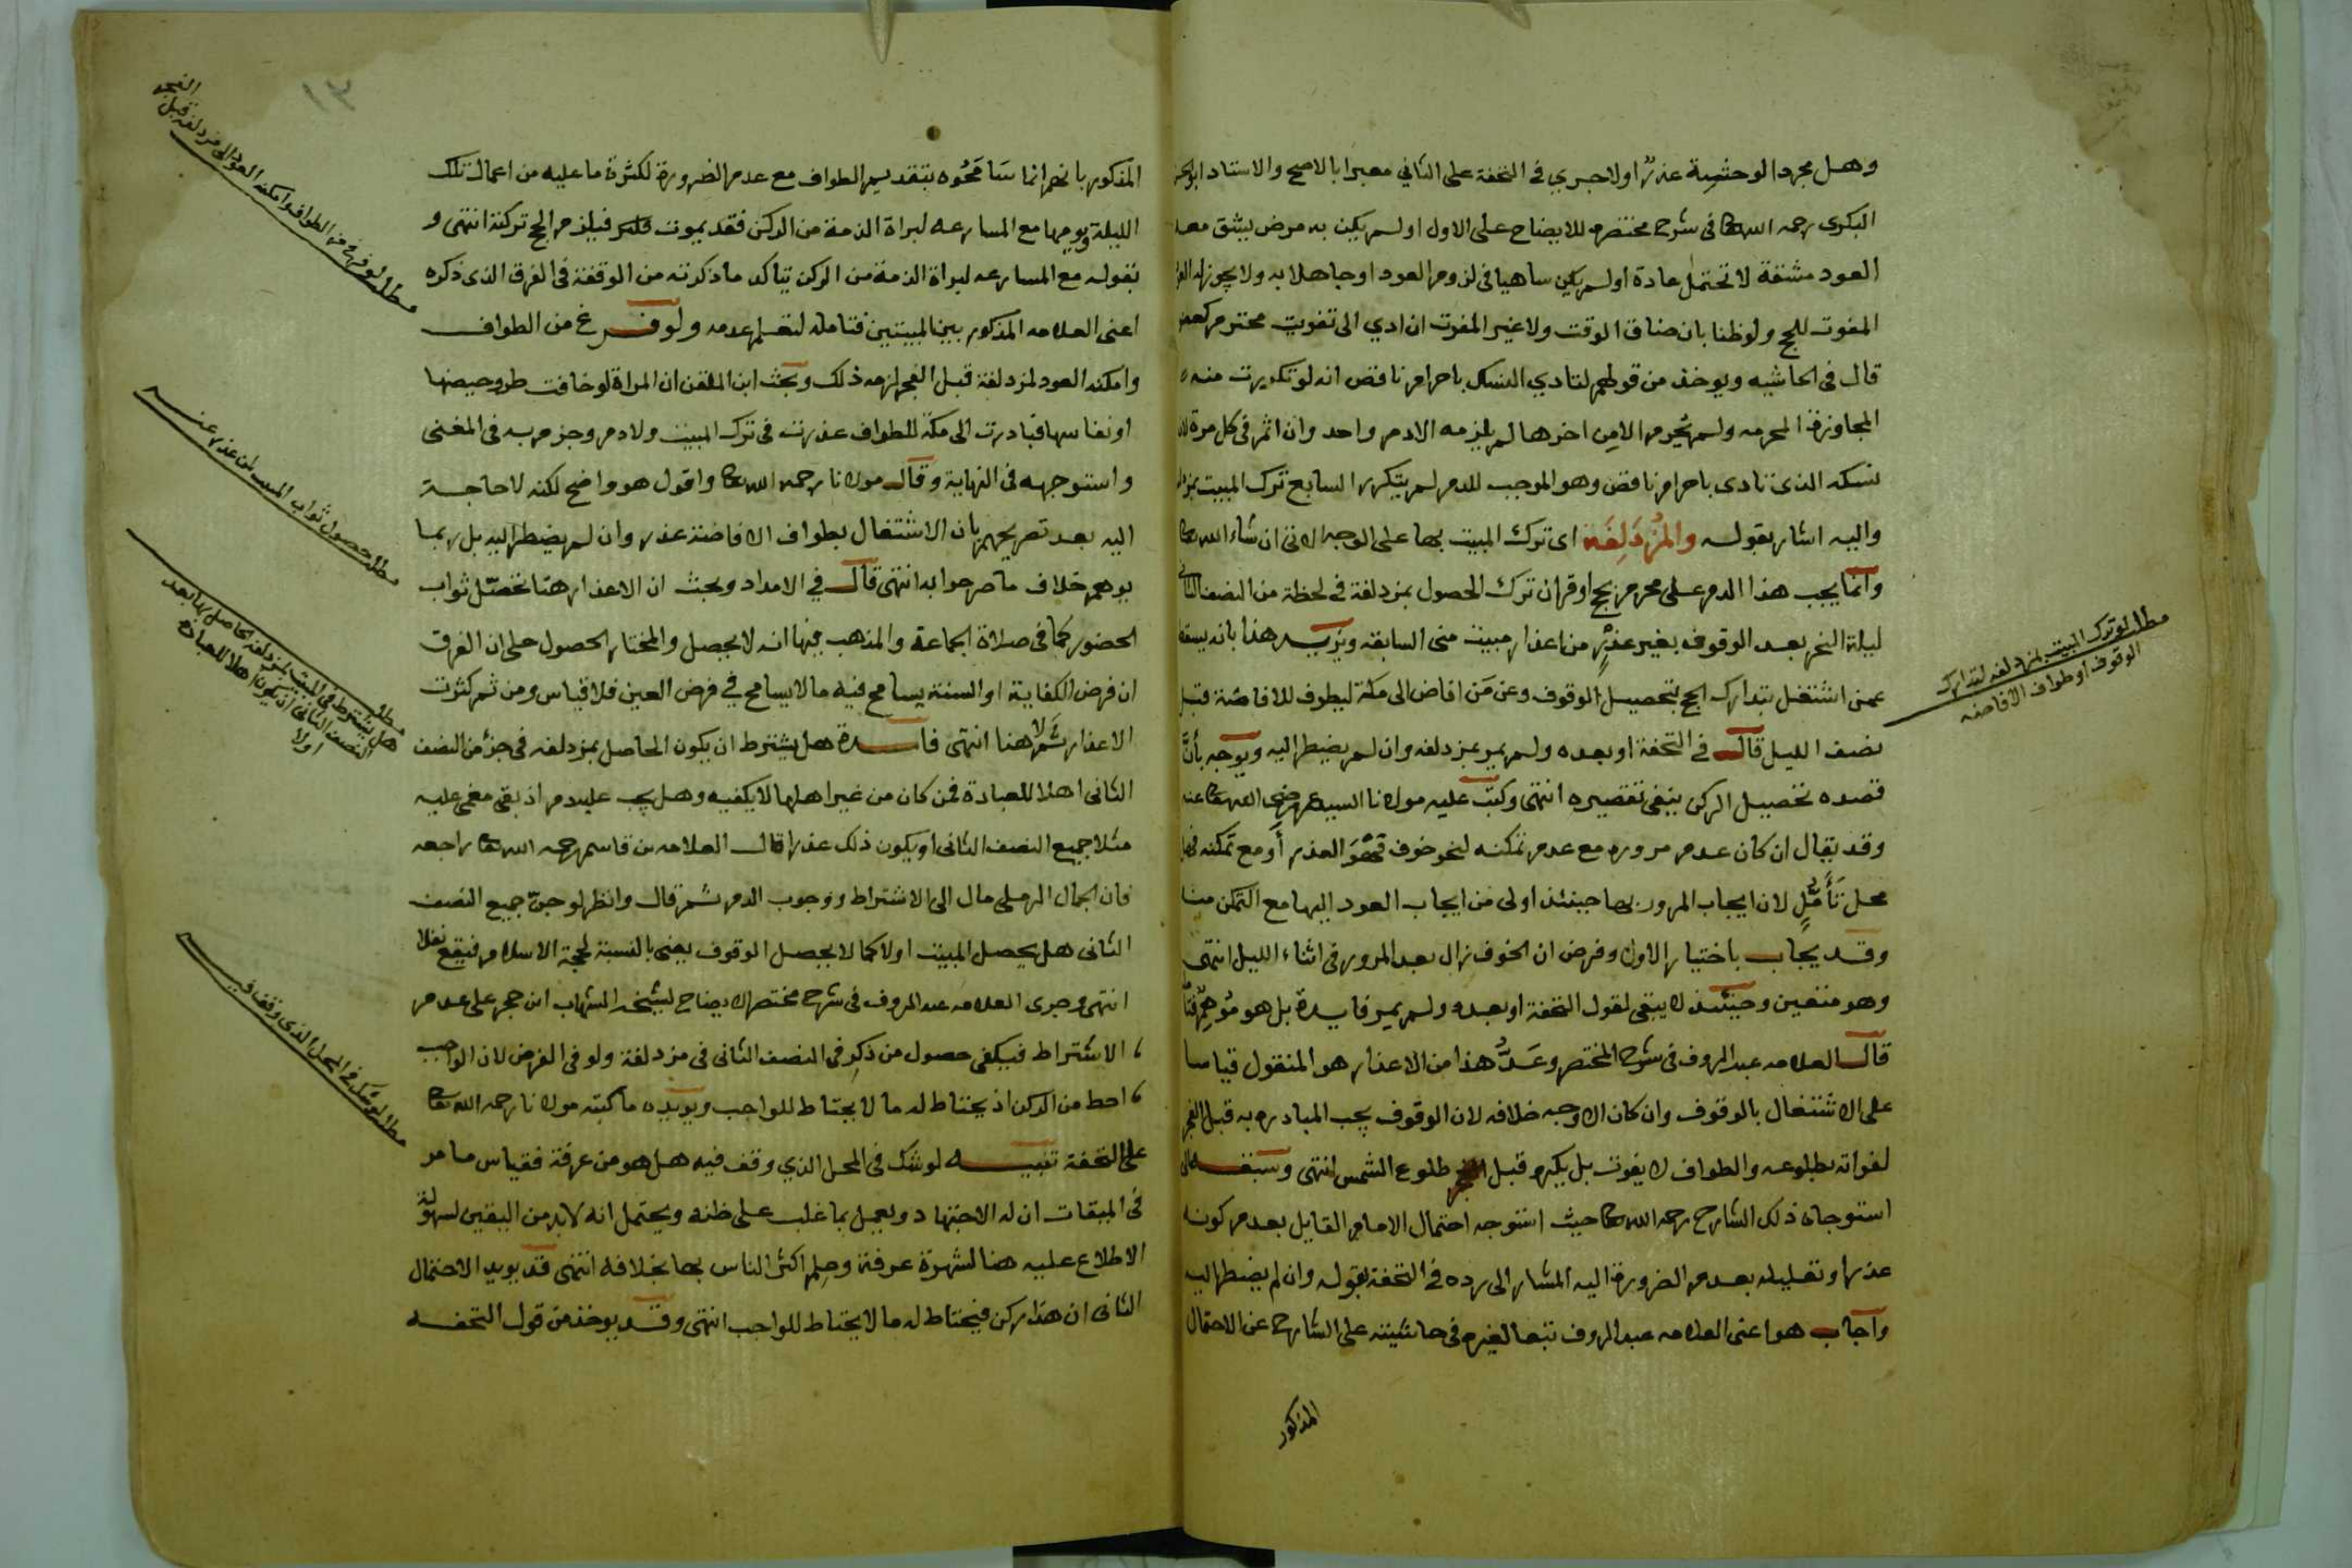 وهل مجرد الوحشة عذر اولا جري في التحفة على الثاني معبرا بالاصح والاستاد ابو الحسن
البكرى رحمه الله تعالى في شرح مختصره للايضاح على الاول اولم يكن به مرض يشق معه
العود مشقة لا تحتمل عادة اولم يكن ساهيا في لزوم العود او جاهلا به ولا يجوز له العود
المفوت للحج ولو ظنا بان ضاق الوقت ولا غير المفوت ان ادي الى تفويت محترم كعضو
قال في الحاشيه ويوخذ من قولهم لتادي النسك باحرام ناقص انه لو تكررت منه
المجاوزة المحرمه ولم يحرم الا من اخرها لم يلزمه الا دم واحد وان اثم في كل مرة لان
نسكه الذى تادى باحرام ناقص وهو الموجب للدم لم يتكرر السابع ترك المبيت بمزدلفة
واليه اشار بقوله والمزدلفة اى ترك المبيت بها على الوجه الاتى ان شاء الله تعالى
وانما يجب هذا الدم على محرم بحج او قران ترك الحصول بمزدلفة في لحظة من النصف الثاني
ليلة النحر بعد الوقوف بغير عذر من اعذار مبيت منى السابقه ويزيد هذا بانه يسقط
عمن اشتغل بتدارك الحج بتحصيل الوقوف وعن من افاض الى مكة ليطوف للافاضة قبل
نصف الليل قال في التحفة او بعده ولم يمر بمزدلفه وان لم يضطر اليه ويوجه بأن
قصده تحصيل الركن ينفى تقصيره انتهى وكتب عليه مولانا السيد عمر رضى الله تعالى عنه
وقد يقال ان كان عدم مروره مع عدم تمكنه لنحو خوف فهو العذر أو مع تمكنه فهو
محل تأمل لان ايجاب المرور بها حينئذ اولى من ايجاب العود اليها مع التمكن منه
وقد يجاب باختيار الاول وفرض ان الخوف زال بعد المرور في اثناء الليل انتهى
وهو متعين وحينئذ لا يبقى لقول التحفة او بعده ولم يمر فايدة بل هو موهم
قال العلامه عبد الروف في شرح المختصر وعد هذا من الاعذار هو المنقول قياسا
على الاشتغال بالوقوف وان كان الاوجه خلافه لان الوقوف يجب المبادره به قبل الفجر
لفواته بطلوعه والطواف لا يفوت بل يكره قبل طلوع الشمس انتهى وسبقه الى
استوجاه ذلك الشارح رحمه الله تعالى حيث استوجه احتمال الامام القايل بعدم كونه
عذرا وتعليله بعدم الضرورة اليه المشار الى رده في التحفة بقوله وان لم يضطر اليه
واجاب هو اعنى العلامه عبد الروف تبعا لغيره في حاشيته على الشارح عن الاحتمال
المذكور
مطلب لو ترك المبيت بمزدلفه لتدارك
الوقوف او طواف الافاضه
١٣
المذكور بانهم انما سامحوه بتقديم الطواف مع عدم الضرورة لكثرة ما عليه من اعمال تلك
الليلة ويومها مع المسارعه لبراة الذمة من الركن فقد يموت فيلزم الحج تركته انتهى و
بقوله مع المسارعه لبراة الذمة من الركن يتاكد ما ذكرته من الوقفة في الفرق الذى ذكره
اعنى العلامه المذكور بين المبيتين فتامله لتعلم عدمه ولو فرغ من الطواف
وامكنه العود لمزدلفة قبل الفجر لزمه ذلك وبحث ابن الملقن ان المراة لو خافت طرو حيضها
او نفاسها فبادرت الى مكة للطواف عذرت في ترك المبيت ولا دم وجزم به في المغنى
واستوجهه في النهاية وقال مولانا رحمه الله تعالى واقول هو واضح لكنه لا حاجة
اليه بعد تصريحهم بان الاشتغال بطواف الافاضة عذر وان لم يضطر اليه بل ربما
يوهم خلاف ما صرحوا به انتهى قال في الامداد وبحث ان الاعذار هنا تحصل ثواب
الحضور كما في صلاة الجماعة والمذهب فيها انه لا يحصل والمختار الحصول على ان الفرق
ان فرض الكفاية او السنة يسامح فيه ما لا يسامح في فرض العين فلا قياس ومن ثم كثرت
الاعذار ثم لا هنا انتهى فايدة هل يشترط ان يكون الحاصل بمزدلفه في جزء من النصف
الثانى اهلا للعبادة فمن كان من غير اهلها لا يكفيه وهل يجب عليه دم اذ بقى مغمى عليه
مثلا جميع النصف الثانى او يكون ذلك عذرا قال العلامه بن قاسم رحمه الله تعالى راجعه
فان الجمال الرملى مال الى الاشتراط ووجوب الدم ثم قال وانظر لو جن جميع النصف
الثانى هل يحصل المبيت اولا كما لا يحصل الوقوف يعنى بالنسبة لحجة الاسلام فيقع نفلا
انتهى وجرى العلامه عبد الروف في شرح مختصر الايضاح لشيخه الشهاب ابن حجر على عدم
الاشتراط فيكفى حصول من ذكر في النصف الثانى في مزدلفة ولو في الفرض لان الواجب
احط من الركن اذ يحتاط له ما لا يحتاط للواجب ويويده ما كتبه مولانا رحمه الله تعالى
على التحفة تنبيه لو شك في المحل الذي وقف فيه هل هو من عرفة فقياس ما مر
في الميقات ان له الاجتهاد ويعمل بما غلب على ظنه ويحتمل انه لابد من اليقين لسهولة
الاطلاع عليه هنا لشهرة عرفة وعلم اكثر الناس بها بخلافه انتهى قد يويد الاحتمال
الثانى ان هذا ركن فيحتاط له ما لا يحتاط للواجب انتهى وقد يوخذ من قول التحفه
مطلب لو فرغ من الطواف وامكنه العود الى مزدلفة قبل
الفجر
مطلب حصول ثواب المبيت لمن عذر عنه
مطلب
هل يشترط في المبيت بمزدلفه الحاصل بها بعد
النصف الثانى ان يكون اهلا للعبادة
اولا
مطلب لو شك في المحل الذى وقف فيه